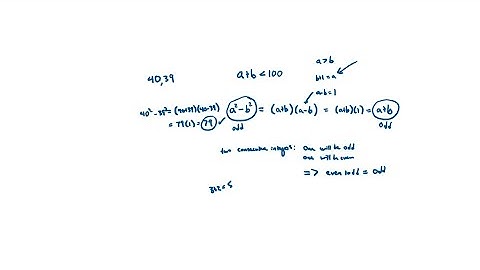 a>b
40,39
a+b < 100
b+1 = a
a-b = 1
40² - 39² = (40+39)(40-39)
= 79(1) = 79
a² - b² = (a+b)(a-b) = (a+b)(1) = a+b
odd
odd
two consecutive integers: one will be odd
one will be even
=> even + odd = odd
3+2=5